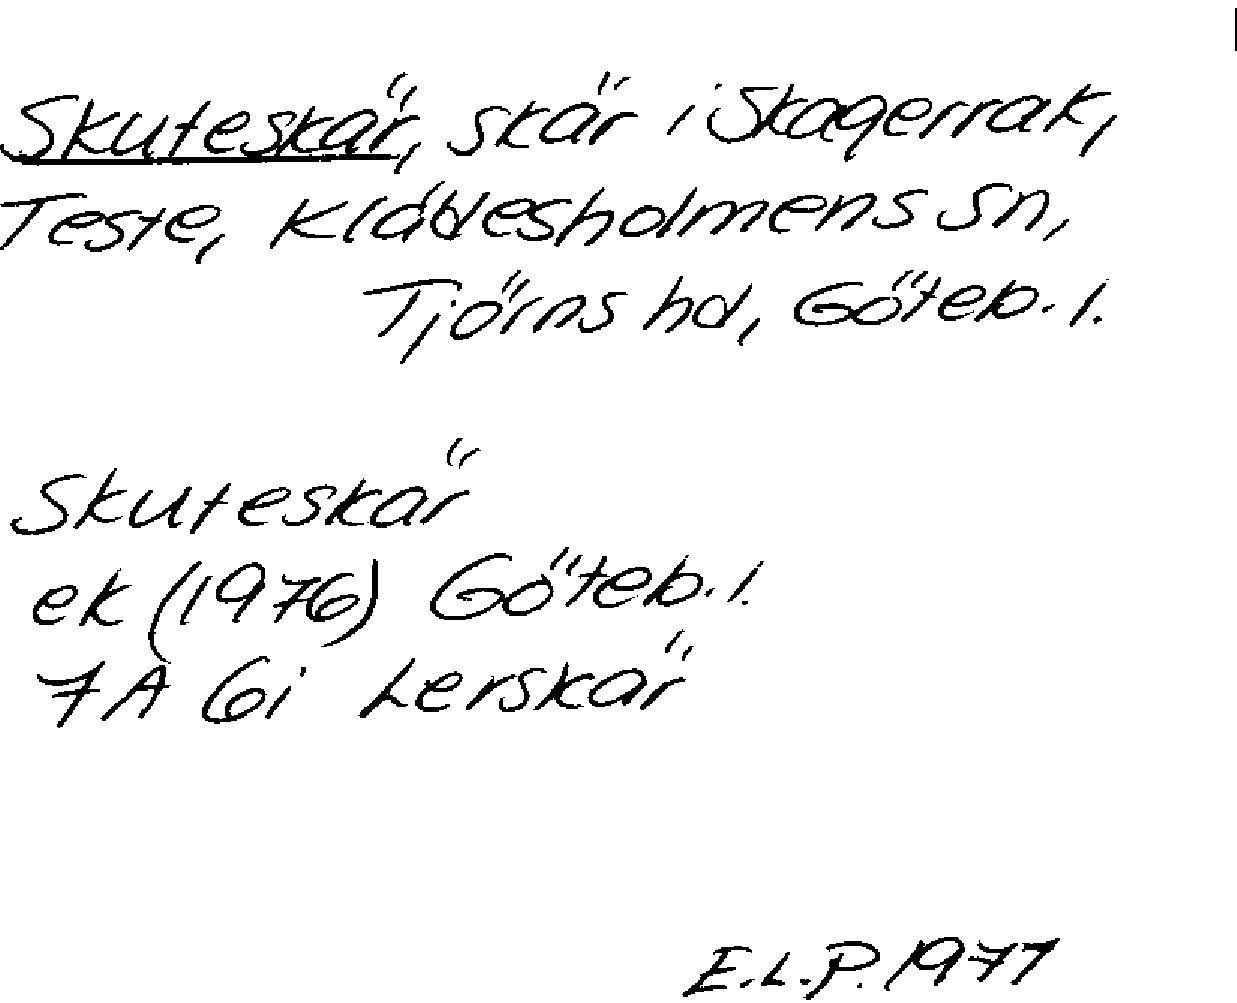 Skuteskär, skär i Skagerrak,
Teste, Klädesholmens sn,
Tjörns hd, Göteb. l.
Skuteskär
ek (1976) Göteb. l.
7A 6i Lerskär
E.L.P. 1977